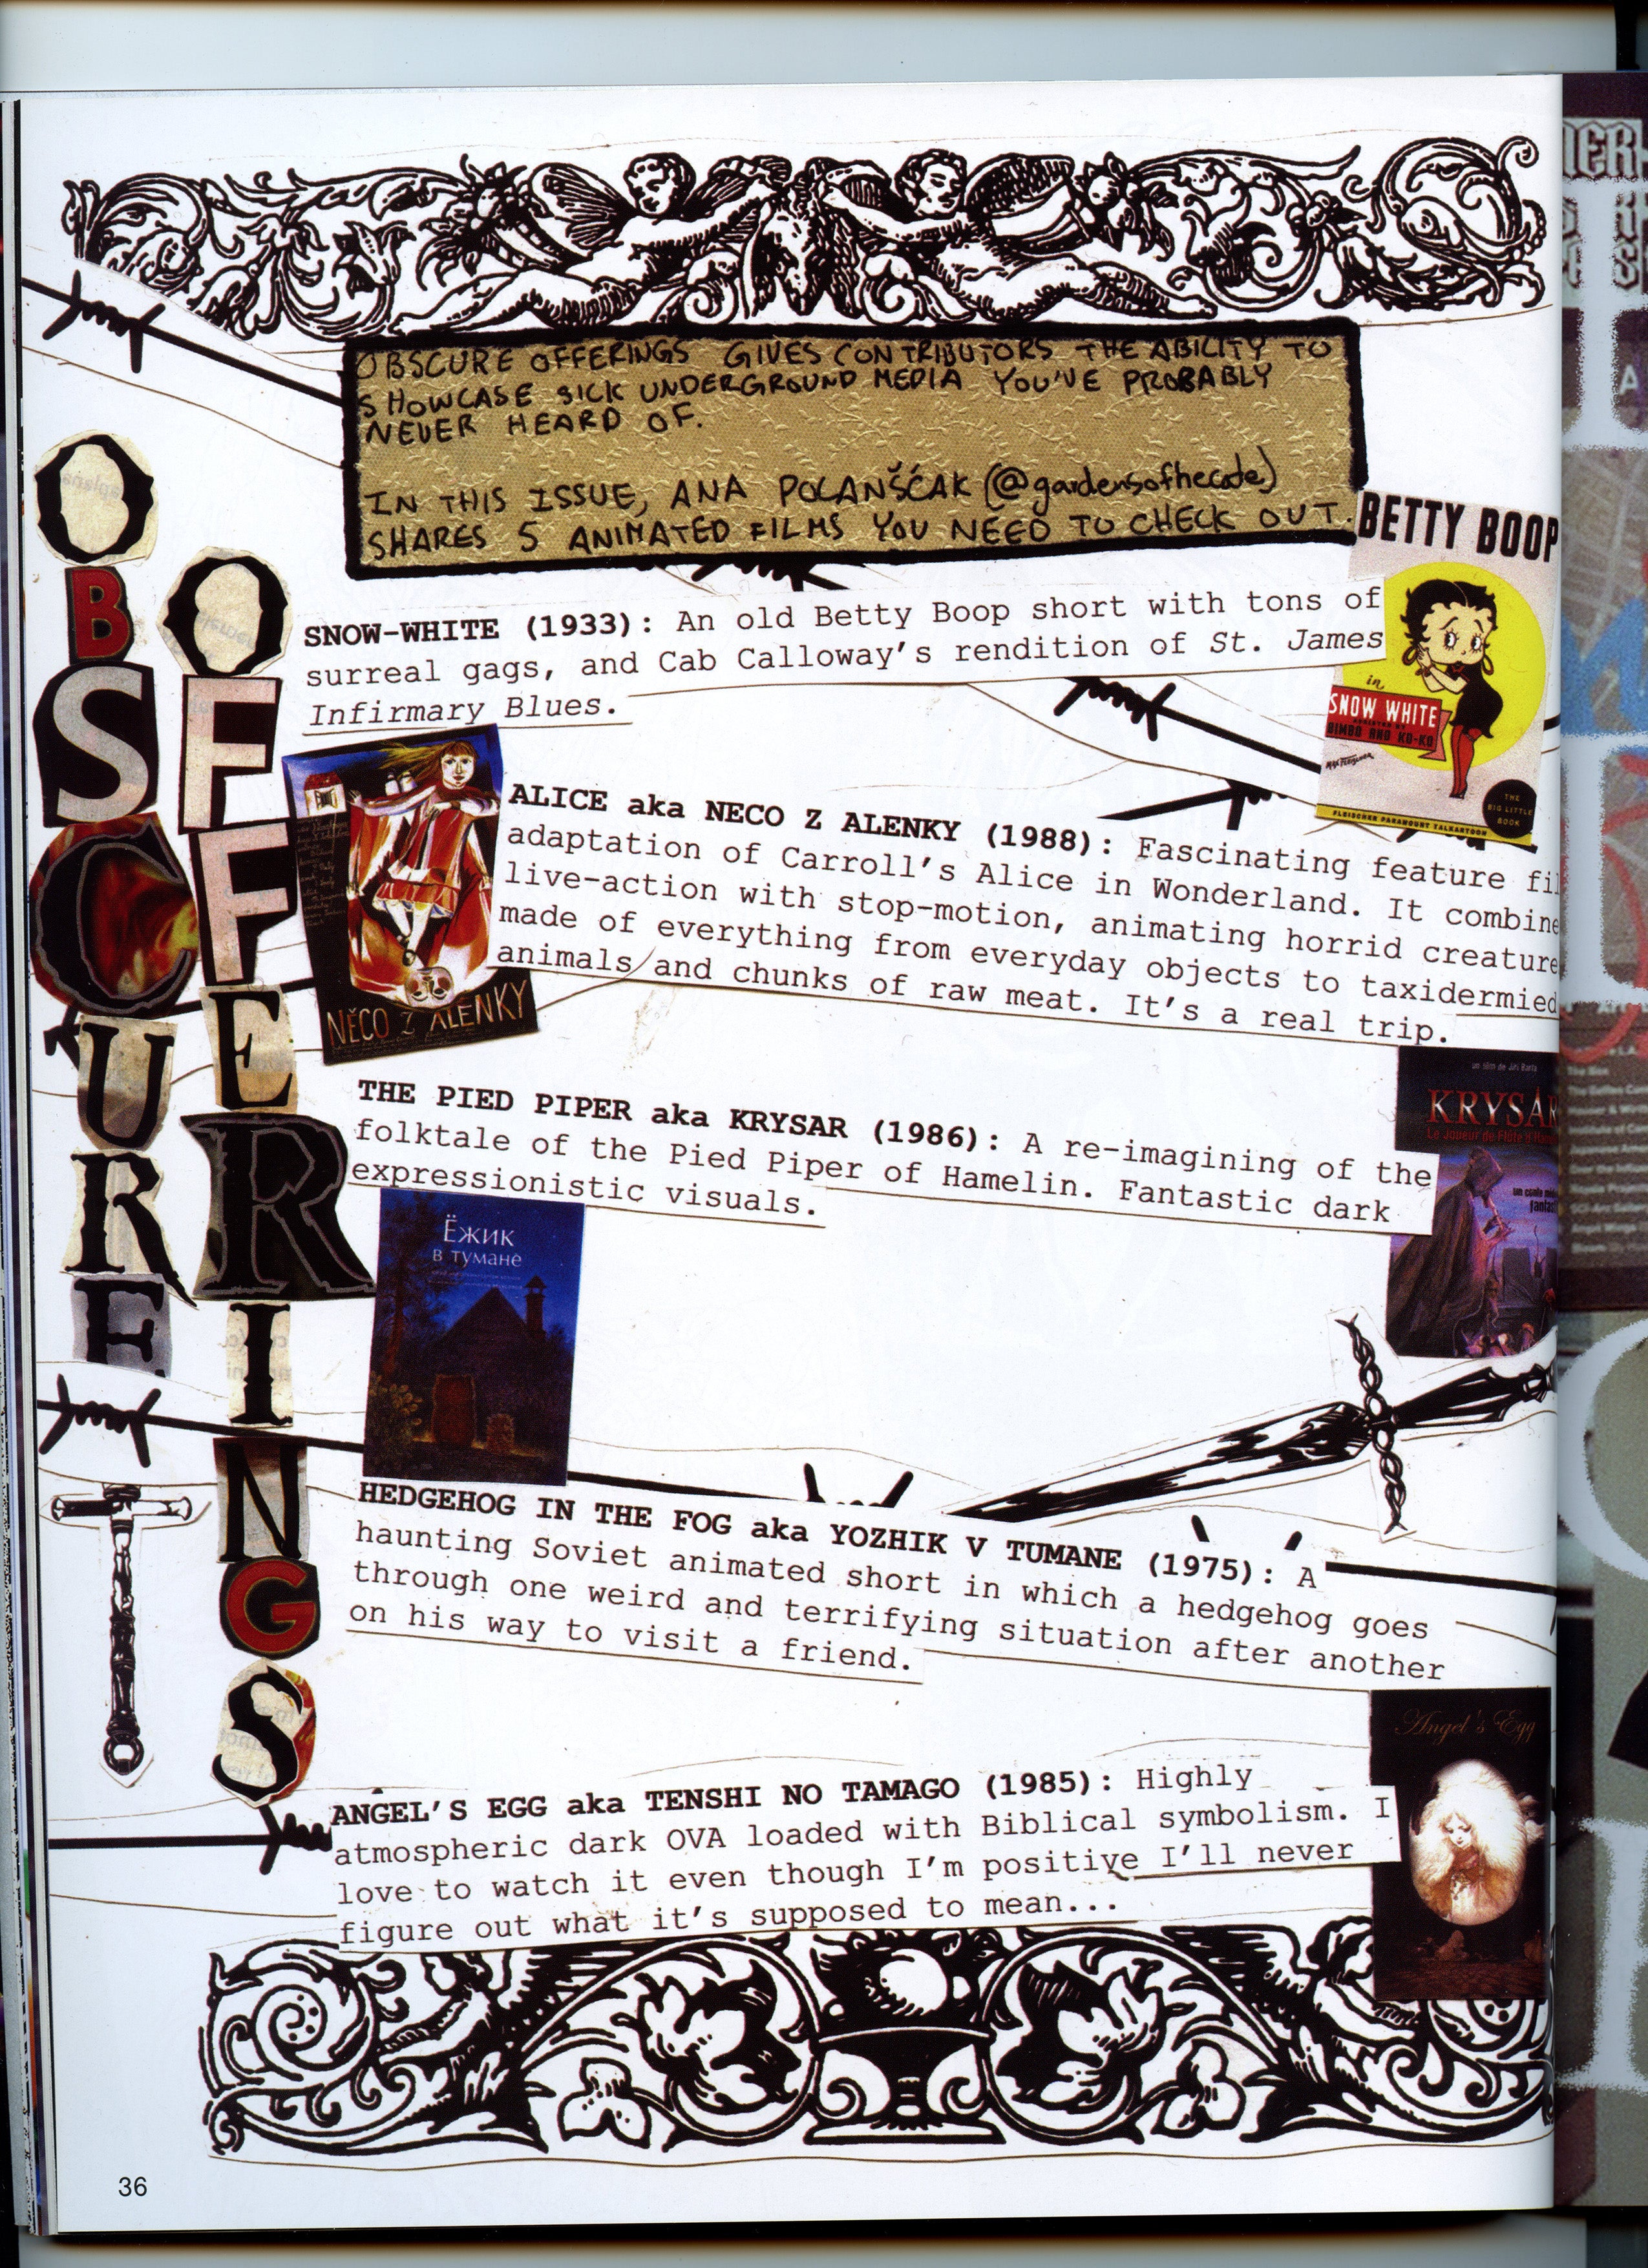 OBSCURE
OFFERINGS
OBSCURE OFFERINGS GIVES CONTRIBUTORS THE ABILITY TO
SHOWCASE SICK UNDERGROUND MEDIA YOU'VE PROBABLY
NEVER HEARD OF.
IN THIS ISSUE, ANA POLANŠĆAK (@gardensofhecate)
SHARES 5 ANIMATED FILMS YOU NEED TO CHECK OUT.
BETTY BOOP
in
SNOW WHITE
BIMBO AND KO-KO
MAX FLEISCHER
THE
BIG LITTLE
BOOK
FLEISCHER PARAMOUNT TALKARTOON
SNOW-WHITE (1933): An old Betty Boop short with tons of
surreal gags, and Cab Calloway's rendition of St. James
Infirmary Blues.
NĚCO Z ALENKY
ALICE aka NECO Z ALENKY (1988): Fascinating feature fil
adaptation of Carroll's Alice in Wonderland. It combine
live-action with stop-motion, animating horrid creature
made of everything from everyday objects to taxidermied
animals and chunks of raw meat. It's a real trip.
un film de Jiří Barta
KRYSAŘ
Le Joueur de Flûte
THE PIED PIPER aka KRYSAR (1986): A re-imagining of the
folktale of the Pied Piper of Hamelin. Fantastic dark
expressionistic visuals.
Ёжик
в тумане
HEDGEHOG IN THE FOG aka YOZHIK V TUMANE (1975): A
haunting Soviet animated short in which a hedgehog goes
through one weird and terrifying situation after another
on his way to visit a friend.
Angel's Egg
ANGEL'S EGG aka TENSHI NO TAMAGO (1985): Highly
atmospheric dark OVA loaded with Biblical symbolism. I
love to watch it even though I'm positive I'll never
figure out what it's supposed to mean...
36